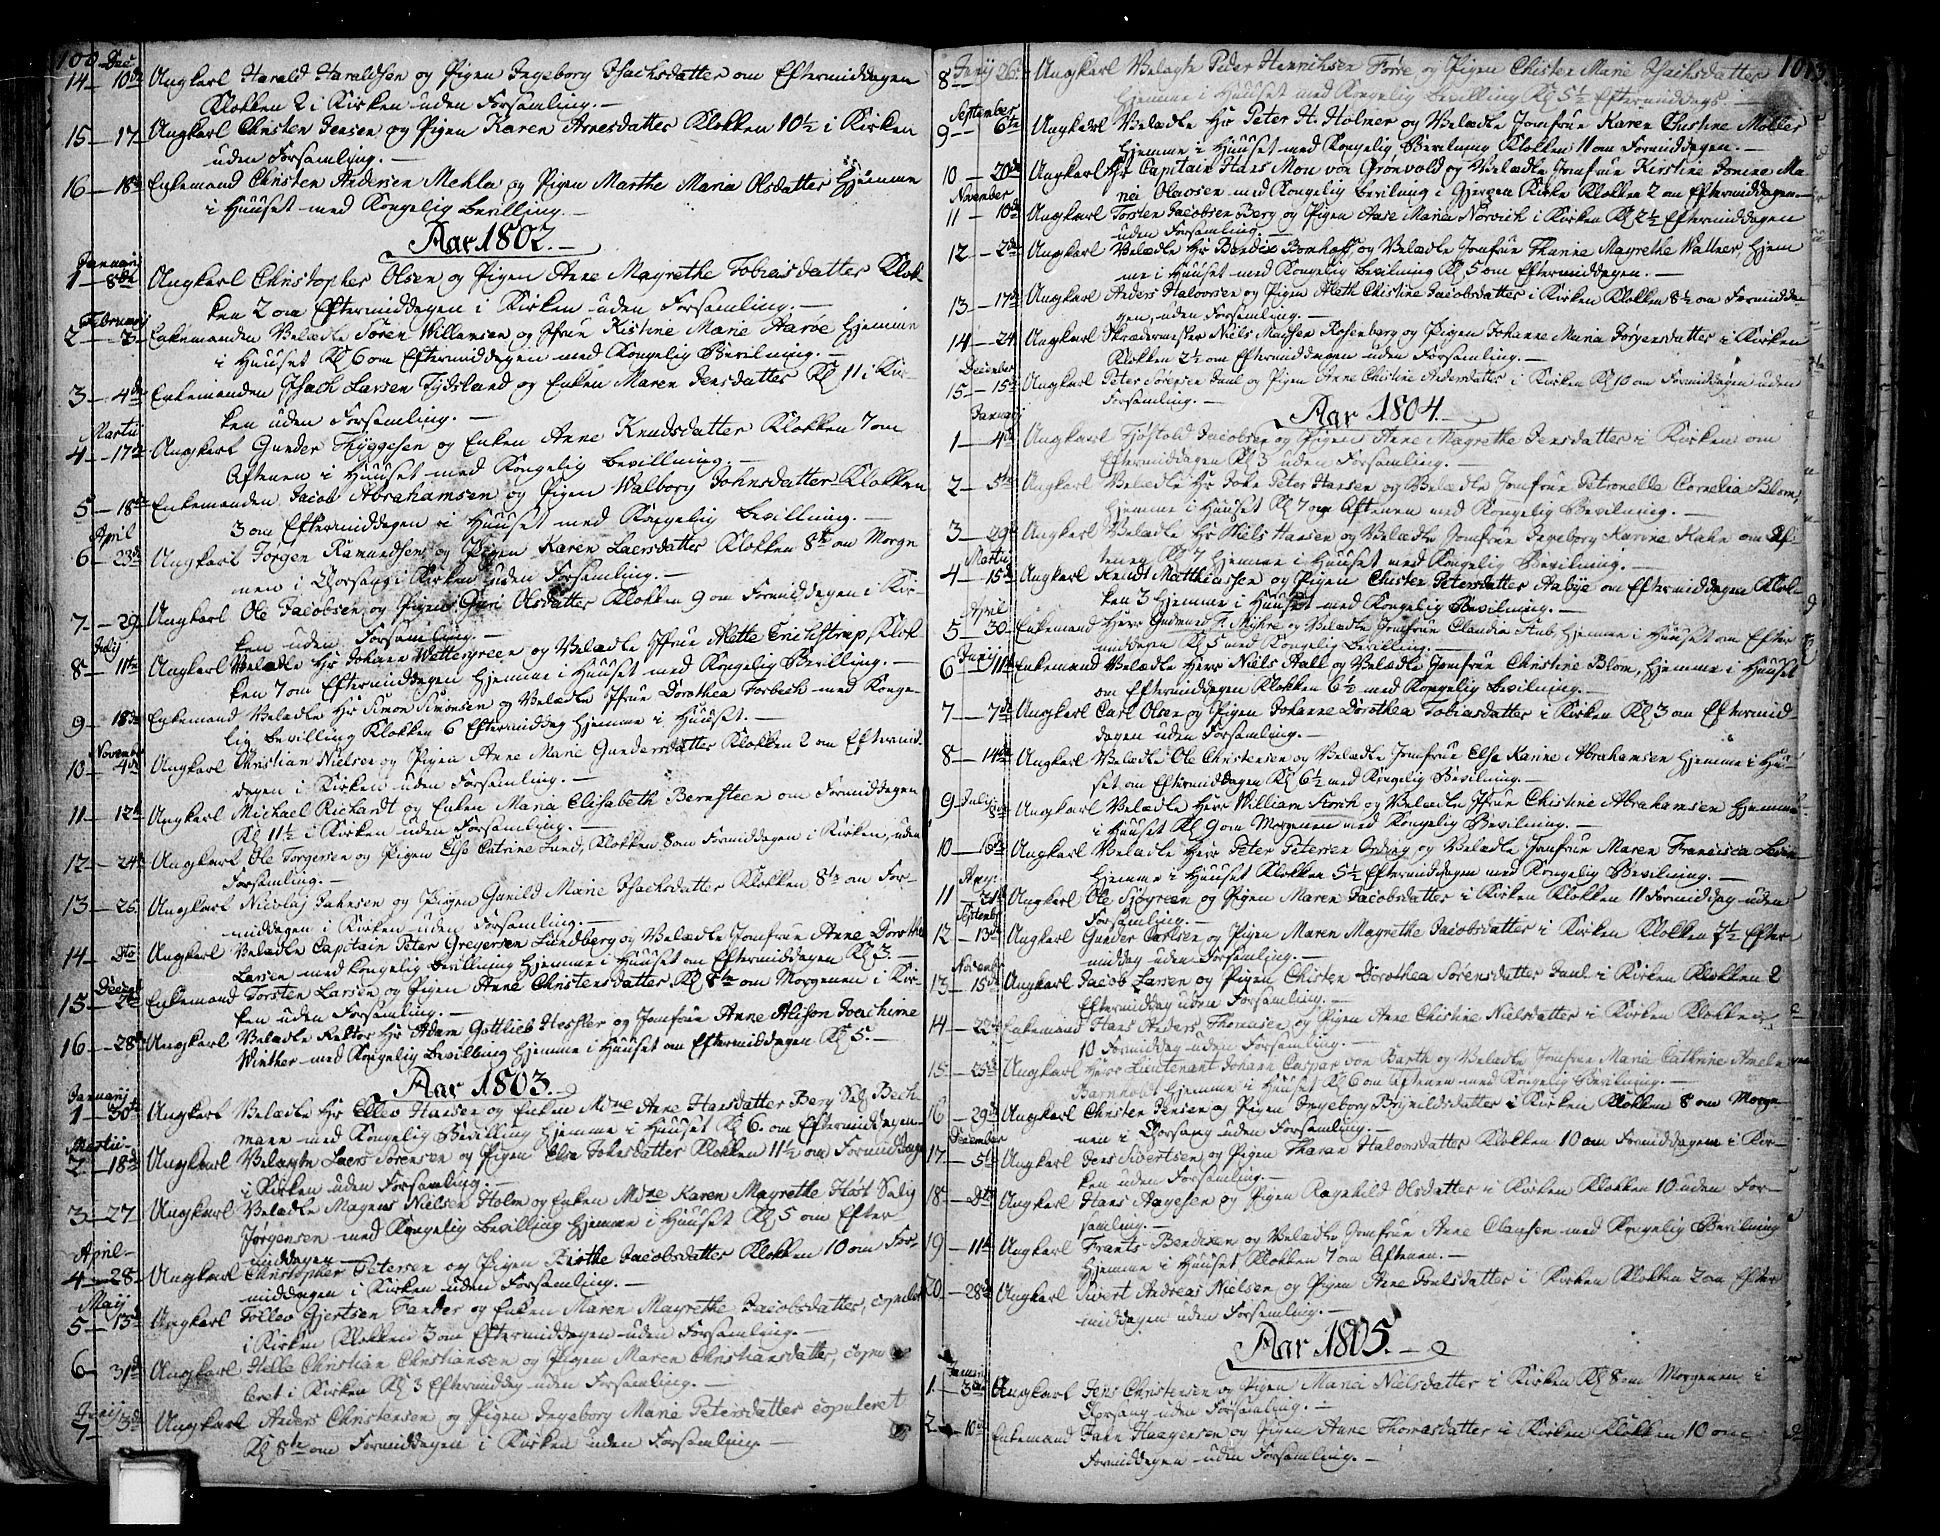 100 Dec:
14 — 10de Ungkarl Harald Haraldsen og Pigen Ingeborg Isachsdatter om Eftermiddagen
Klokken 2 i Kirken uden Forsamling. —
15 — 17de Ungkarl Christen Jensen og Pigen Karen Arnesdatter Klokken 10½ i Kirken
uden Forsamling. —
16 — 18de Enkemand Christen Andersen Mehla og Pigen Marthe Maria Olsdatter Hjemme
i Huuset med Kongelig Bevilling. —
Aar 1802. —
Januarij
1 — 8de Ungkarl Christopher Olsen og Pigen Anne Magrethe Tobiasdatter Klok-
ken 2 om Eftermiddagen i Kirken uden Forsamling. —
Februarij
2 — Enkemanden Velædle Søren Willumsen og Jfrue Kistine Marie Aarøe Hjemme
i Huuset Kl 6 om Eftermiddagen med Kongelig Bevilning. —
3 — 4de Enkemanden Isach Larsen Tydsland og Enken Maren Jensdatter Kl 11 i Kir-
ken uden Forsamling. —
Martii
4 — 17de Ungkarl Gunder Thyggesen og Enken Anne Knudsdatter Klokken 7 om
Aftenen i Huuset med Kongelig Bevillning. —
5 — 18de Enkemanden Jacob Abrahamsen og Pigen Walborg Johnsdatter Klokken
3 om Eftermiddagen i Huuset med Kongelig Bevillning. —
April
6 — 23de Ungkarl Jørgen Ramundsen og Pigen Karen Laersdatter Klokken 8te om Morge-
nen i Chorsang i Kirken uden Forsamling. —
7 — 29 Ungkarl Ole Jacobsen og Pigen Guri Olsdatter Klokken 9 om Formiddagen i Kir-
ken uden Forsamling. —
Julij
8 — 11te Ungkarl Velædle Hr Johann Wettergreen og Velædle Jfrue Mette Erichstrup, Klok-
ken 7 om Eftermiddagen Hjemme i Huuset med Kongelig Bevilling. —
9 — 18de Enkemand Velædle Hr Simon Simonsen og Velædle Jfrue Dorothea Forbech med Konge-
lig Bevilling Klokken 6 Eftermiddag Hjemme i Huuset. —
November
10 — 4de Ungkarl Christian Nielsen og Pigen Anne Marie Gundersdatter Klokken 2 om Eftermid-
dagen i Kirken uden Forsamling. —
11 — 12te Ungkarl Michael Richardt og Enken Maria Elisabeth Bernsteen om Formiddagen
Kl 11½ i Kirken uden Forsamling. —
12 — 24de Ungkarl Ole Torgersen og Pigen Else Catrine Lund, Klokken 8 om Formiddagen i Kirken, uden
Forsamling. —
13 — 26. Ungkarl Nicolaj Jahnsen og Pigen Gunild Marie Isachsdatter Klokken 8½ om For-
middagen i Kirken uden Forsamling. —
14 — Dto Ungkarl Velædle Capitain Peter Gregersen Lundberg og Velædle Jomfrue Anne Dorothe
Larsen med Kongelig Bevillning Hjemme i Huuset om Eftermiddagen Kl 3. —
Decemb
15 — Enkemand Torsten Larsen og Pigen Anne Christensdatter, Kl 8te om Morgenen i Kir-
ken uden Forsamling. —
16 — 28de Ungkarl Velædle Rektor Hr Adam Gottlieb Hesfler og Jomfrue Anne Alison Joachime
Winther med Kongelig Bevilling Hjemme i Huuset om Eftermiddagen Kl 5. —
Aar 1803. —
Januarij
1 — 30te Ungkarl Velædle Hr Ellev Hansen og Enken Mme Anne Hansdatter Berg Salg Bech-
mann med Kongelig Bevilling Hjemme i Huuset Kl 6. om Eftermiddagen —
Martii
2 — 18de Ungkarl Velagte Laers Sørensen og Pigen Else Johnsdatter Klokken 11½ om Formiddage
i Kirken uden Forsamling. —
3 — 27 Ungkarl Velædle Magnus Nielsen Holm og Enken Mme Karen Magrethe Høst Salig
Jørgensen med Kongelig Bevilling Hjemme i Huuset Kl 5 om Efter
middagen —
April
4 — 28 Ungkarl Christopher Petersen og Pigen Birthe Jacobsdatter Klokken 10 om For-
middagen i Kirken uden Forsamling. —
Maij
5 — 13de Ungkarl Tollev Gjertsen Sander og Enken Maren Magrethe Jacobsdatter, copuleret
i Kirken Klokken 3 om Eftermiddagen uden Forsamling. —
6 — 31de Ungkarl Helle Christian Christiansen og Pigen Maren Christiansdatter, copu
leret i Kirken Kl 3 Eftermiddag uden Forsamling. —
Junij
7 — 3de Ungkarl Anders Christensen og Pigen Ingeborg Marie Petersdatter copuleret
Kl 8te om Formiddagen i Kirken uden Forsamling —
Junij 101
8 — 26 Ungkarl Velagte Peder Henrichsen Forre og Pigen Chisten Marie Isachsdatter
Hjemme i Huuset med Kongelig Bevilling Kl 5½ Eftermiddags. —
September
9 — 6te Ungkarl Velædle Hr Peter H. Holmer og Velædle Jomfrue Karen Christine Møller
Hjemme i Huuset med Kongelig Bevilning Klokken 11 om Formiddagen. —
10 — 20de Ungkarl Hr Capitain Hans Mou von Grønvold og Velædle Jomfrue Kirstine Jonine Ma-
riei Olavsen med Kongelig Bevilning i Gjerpen Kirke Klokken 2 om Eftermiddagen —
November
11 — 10de Ungkarl Torsten Jacobsen Berg og Pigen Aase Maria Norvich i Kirken Kl 2½ Eftermiddagen
uden Forsamling. —
12 — 2de Ungkarl Velædle Hr Bendix Bonhoff, og Velædle Jomfrue Thanna Magrethe Wallner, Hjem
me i Huuset med Kongelig Bevilning Kl 5 om Eftermiddagen. —
13 — 17de Ungkarl Anders Halvorsen og Pigen Aleth Christine Jacobsdatter i Kirken Klokken 8½ om Formidda-
gen, uden Forsamling. —
14 — 24. Ungkarl Skrædermester Niels Madsen Rosenberg og Pigen Johanne Maria Jørgensdatter i Kirken
Klokken 2½ om Eftermiddagen uden Forsamling. —
December
15 — 15de Ungkarl Peter Sørensen Juul og Pigen Anne Chistine Andersdatter i Kirken Kl 10 om Formiddagen uden
Forsamling. —
Januarij Aar 1804. —
1 — 4de Ungkarl Tjøstold Jacobsen og Pigen Anne Magrethe Jensdatter i Kirken om
Eftermiddagen Kl 3 uden Forsamling. —
2 — 5te Ungkarl Velædle Hr Jens Peter Hansen og Velædle Jomfrue Petronelle Cornelia Blom,
Hjemme i Huuset Kl 7 om Aftenen med Kongelig Bevilning. —
3 — 29de Ungkarl Velædle Hr Niels Hansen og Velædle Jomfrue Ingeborg Karine Hahn om Af-
tenen Kl 7 Hjemme i Huuset med Kongelig Bevilning. —
Martii
4 — 15de Ungkarl Knudt Matthiassen og Pigen Chisten Petersdatter Aabye om Eftermiddagen Klok-
ken 3 Hjemme i Huuset med Kongelig Bevilning. —
April
5 — 30 Enkemand Herr Gudmed T. Myhre og Velædle Jomfrue Claudia Stub, Hjemme i Huuset om Efter
middagen Kl 5 med Kongelig Bevilning. —
Junij
6 — 11te Enkemand Velædle Herr Niels Aall og Velædle Jomfrue Christine Blom, Hjemme i Huuset
om Eftermiddagen Klokken 6½ med Kongelig Bevilning. —
7 — 7de Ungkarl Carl Olsen og Pigen Johanne Dorothea Tobiasdatter i Kirken Kl 3 om Eftermid-
dagen uden Forsamling. —
8 — 14de Ungkarl Velædle Ole Christensen og Velædle Jomfrue Else Karine Abrahamsen Hjemme i Huu-
set om Eftermiddagen Kl 6½ med Kongelig Bevilning. —
Julij
9 — 8de Ungkarl Velædle Herr William Kirch og Velædle Jfrue Christine Abrahamsen Hjemme
i Huuset Kl 9 om Morgenen med Kongelig Bevilning. —
10 — 10de Ungkarl Velædle Herr Peter Petersen Ording og Velædle Jomfrue Maren Francisca
Hjemme i Huuset Klokken 5½ Eftermiddagen med Kongelig Bevilning. —
Aug:
11 — 31de Ungkarl Ole Sjøgreen og Pigen Maren Jacobsdatter i Kirken Klokken 11 Formiddag uden
Forsamling. —
Septembr
12 — 13de Ungkarl Gunder Carlsen og Pigen Maren Magrethe Jacobsdatter i Kirken Klokken 3½ Efter-
middag uden Forsamling. —
Novemb
13 — 15de Ungkarl Jacob Larsen og Pigen Chisten Dorothea Sørensdatter Juul i Kirken Klokken 2
Eftermiddag uden Forsamling. —
14 — 22de Enkemand Hans Anders Thomasen og Pigen Anne Chistine Nielsdatter i Kirken Klokken
10 Formiddag uden Forsamling. —
15 — 25de Ungkarl Herr Lieutenant Johann Caspar von Barth og Velædle Jomfrue Maria Cathrine Amelie
Barnholdt Hjemme i Huuset Kl 6 om Aftenen med Kongelig Bevilning. —
16 — 29de Ungkarl Christen Jensen og Pigen Ingeborg Brynildsdatter i Kirken Klokken 8 om Morge
nen i Chorsang uden Forsamling. —
December
17 — 5te Ungkarl Jens Sivertsen og Pigen Tharan Halvorsdatter Klokken 10 om Formiddagen i Kir-
ken uden Forsamling. —
18 — Dto Ungkarl Hans Aagesen og Pigen Ragnhild Olsdatter i Kirken Klokken 10 uden For-
samling. —
19 — 11te Ungkarl Frants Bendixen og Velædle Jomfrue Anne Clausen med Kongelig Bevilning
Hjemme i Huuset Klokken 7 om Aftenen. —
20 — 28de Ungkarl Sivert Andreas Nielsen og Pigen Anne Poulsdatter i Kirken Klokken 2 om Efter
middagen uden Forsamling. —
Aar 1805. —
Januarij
1. — 3de Ungkarl Jens Christensen og Pigen Maria Nielsdatter i Kirken Kl 8 om Morgenen i
Chorsang uden Forsamling. —
2 — 10de Enkemand Jahn Haagensen og Pigen Anne Thomasdatter i Kirken Klokken 10 om
Formiddagen uden Forsamling. —